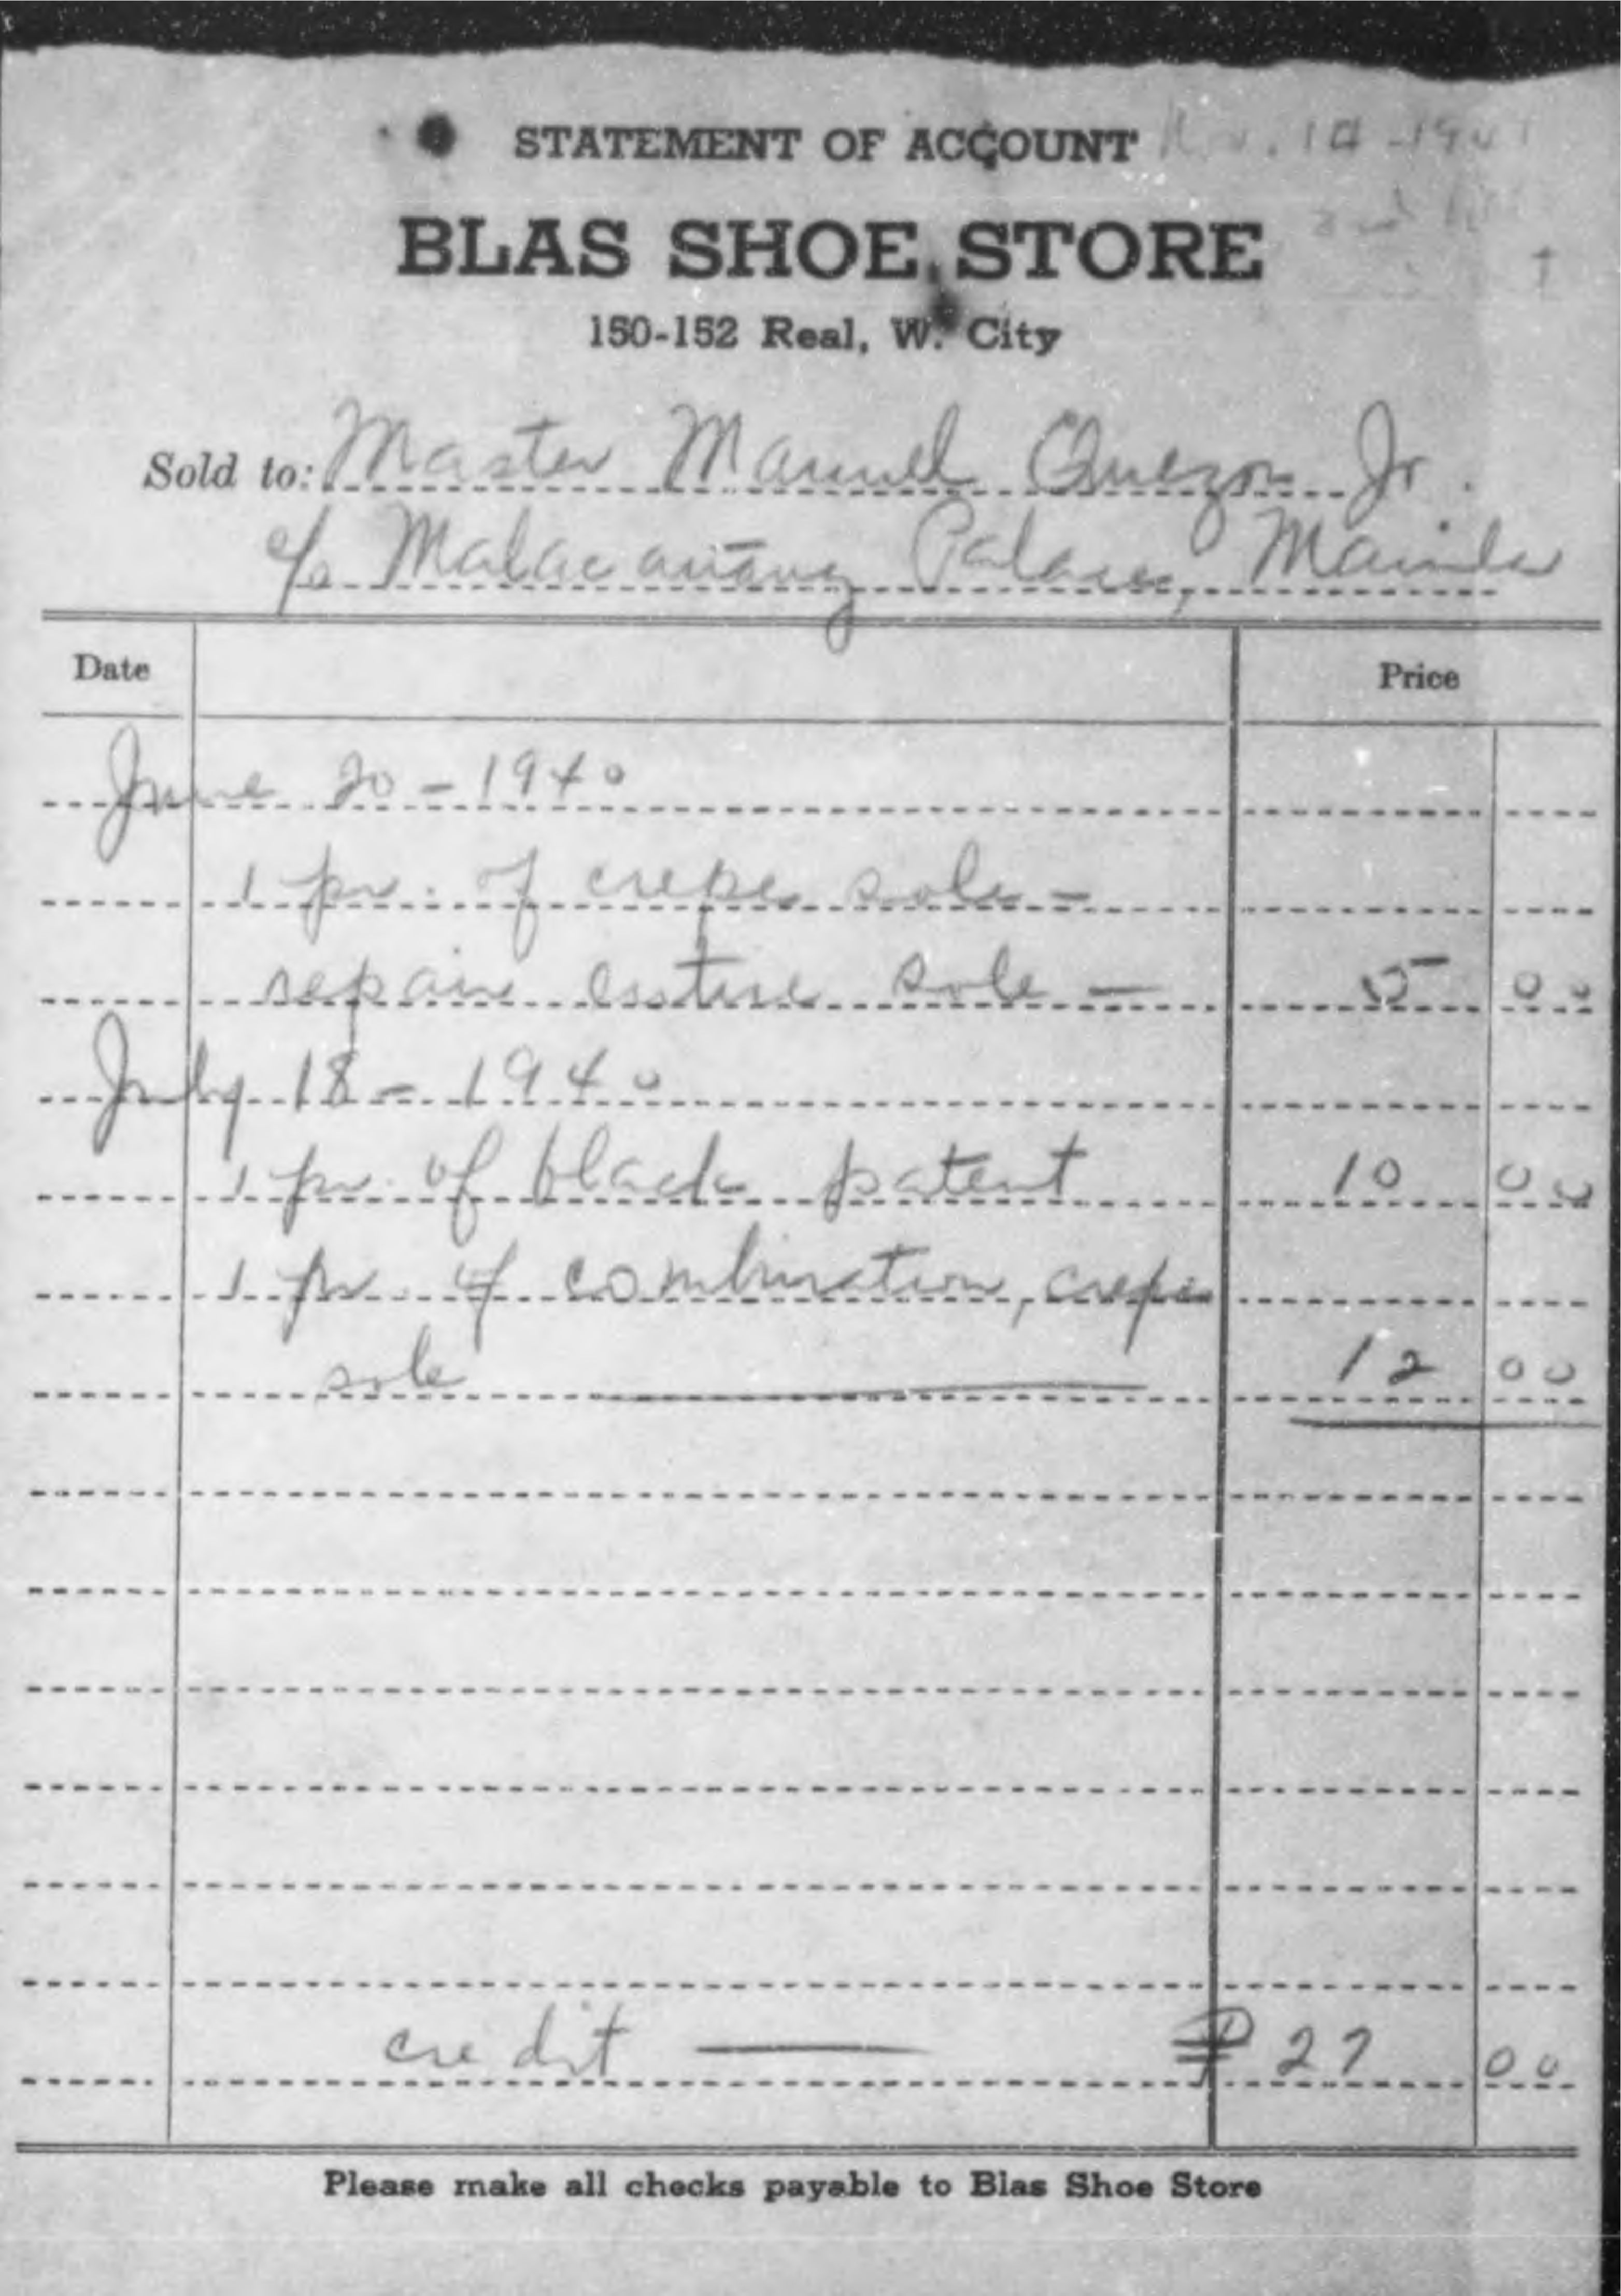 STATEMENT OF ACCOUNT
BLAS SHOE STORE
150-152 Real, W. City
Sold to: Master Manuel Quezon Jr.
c/o Malacañang Palace, Manila
Date Price
June 20 - 1940
1 pr. of crepe sole -
repair entire sole - 5 00
July 18 - 1940
1 pr. of black patent 10 00
1 pr. of combination, crepe
sole 12 00
credit ₱ 27 00
Please make all checks payable to Blas Shoe Store